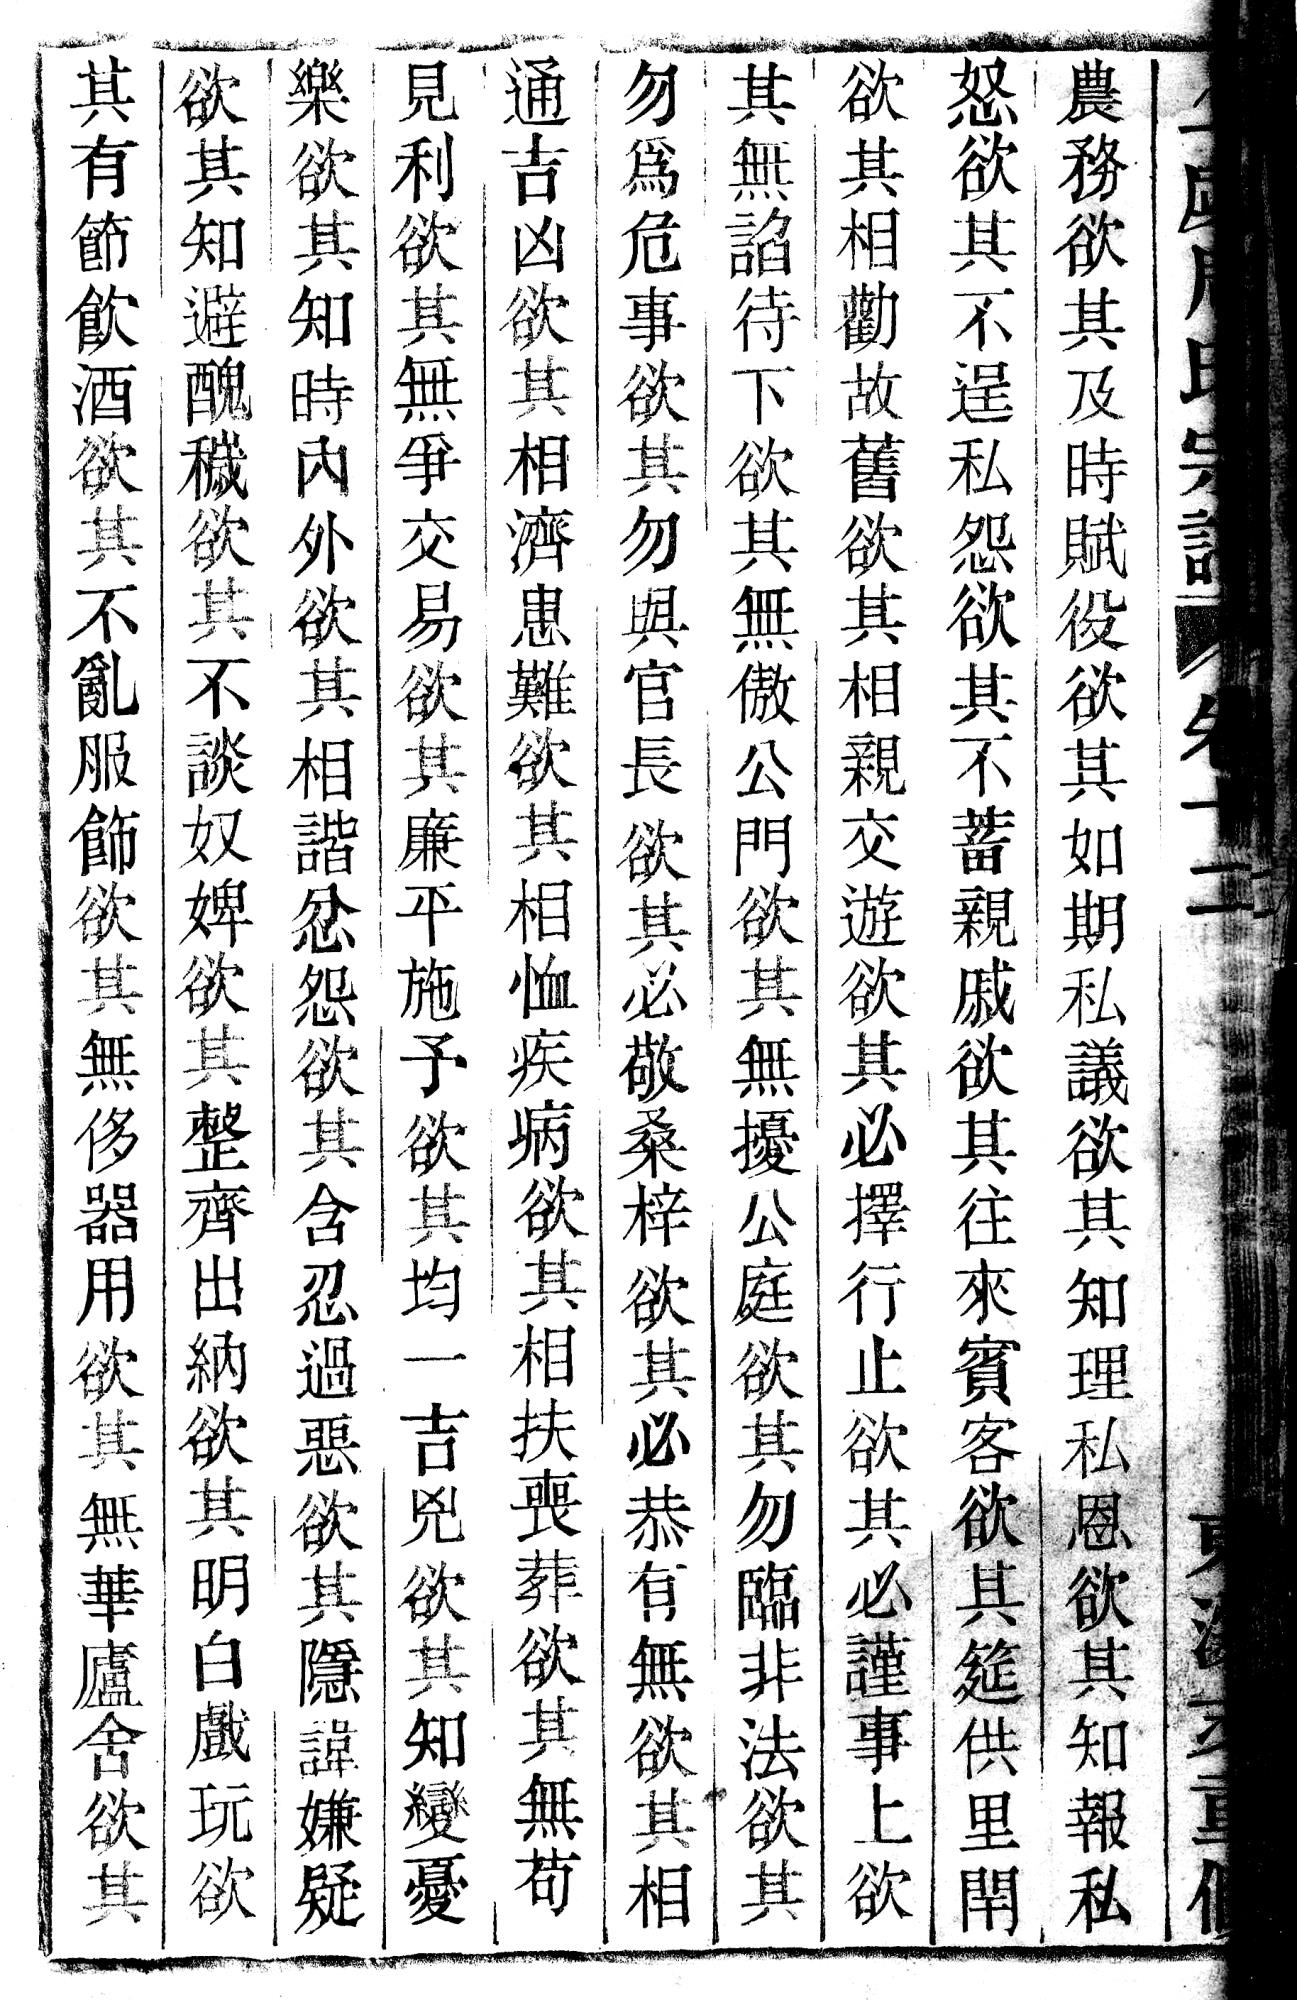 周氏宗譜 卷十二 重修
農務欲其及時賦役欲其如期私議欲其知理私恩欲其知報私
怒欲其不逞私怨欲其不蓄親戚欲其往來賓客欲其筵供里閈
欲其相勸故舊欲其相親交遊欲其必擇行止欲其必謹事上欲
其無諂待下欲其無傲公門欲其無擾公庭欲其勿臨非法欲其
勿爲危事欲其勿與官長欲其必敬桑梓欲其必恭有無欲其相
通吉凶欲其相濟患難欲其相恤疾病欲其相扶喪葬欲其無苟
見利欲其無爭交易欲其廉平施予欲其均一吉兇欲其知變憂
樂欲其知時內外欲其相諧忿怨欲其含忍過惡欲其隱諱嫌疑
欲其知避醜穢欲其不談奴婢欲其整齊出納欲其明白戲玩欲
其有節飮酒欲其不亂服飾欲其無侈器用欲其無華廬舍欲其